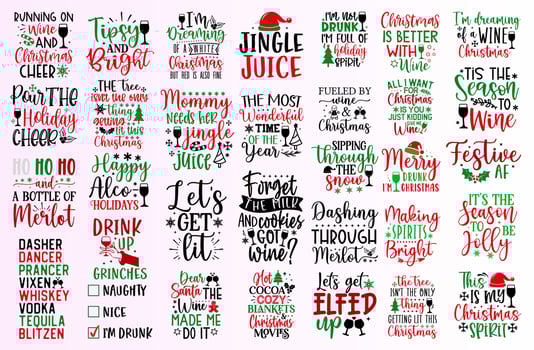 RUNNING ON
WINE
AND
Christmas
CHEER
Tipsy
AND
Bright
I'm
DREAMING
OF A WHITE
Christmas
BUT RED IS ALSO FINE
JINGLE
JUICE
I'M NOT
DRUNK
I'M FULL OF
holiday
SPIRIT
Christmas
IS BETTER
WITH
Wine
I'm dreaming
of a WINE
Christmas
POUR THE
Holiday
CHEER
THE TREE
ISN'T THE ONLY
THING
GETTING
lit this
Christmas
Mommy
NEEDS HER
jingle
JUICE
THE MOST
Wonderful
TIME
OF THE
Year
FUELED BY
wine
&
Christmas
ALL I WANT
FOR
Christmas
IS YOU
JUST KIDDING
I WANT
Wine
'TIS THE
Season
TO
WINE
HO HO HO
and
A BOTTLE OF
Merlot
Happy
Alco
HOLIDAYS
Let's
GET
lit
Forget
THE MILK
AND COOKIES
GOT
wine?
SIPPING
through
THE
snow
Merry
DRUNK
I'M CHRISTMAS
Festive
AF
DASHER
DANCER
PRANCER
VIXEN
WHISKEY
VODKA
TEQUILA
BLITZEN
DRINK
UP
GRINCHES
NAUGHTY
NICE
I'M DRUNK
Dashing
THROUGH
Merlot
Making
SPIRITS
Bright
IT'S THE
Season
TO BE
Jolly
Dear
Santa
THE
Wine
MADE ME
DO IT
Hot
COCOA
COZY
BLANKETS
&
Christmas
MOVIES
Let's get
ELFED
up
the tree
ISN'T THE ONLY
thing
GETTING LIT THIS
Christmas
This
IS MY
Christmas
SPIRIT